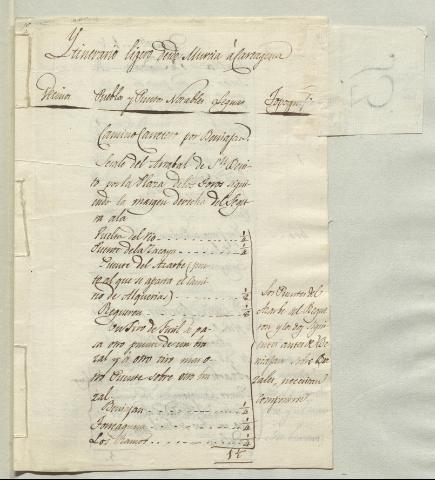 Ytinerario ligero desde Murcia á Cartagena
Vecinos Pueblos y Puntos Notables Leguas Topografia
Camino Carretero por Beniajan.
Sálese del Arrabal de Sn. Beni-
to por la Plaza de los Toros sigui-
endo la margen derecha del Segu-
ra á la
Vuelta del Rio 1/4
Puente de la 1/4
Puente del Azarbe (pun-
to al que se aparta el cami-
no de Alquerias) 1/2
Reguron 1/2
Un tiro de fusil á pa-
sa otro puente de un bra-
zal y á otro tiro mas o-
tro Puente sobre otro bra-
zal.
Beniajan 1/4
Torreaguera 1/4
Los Ramos 1/4
Los Puentes del
Azarbe del Regue-
ron y los dos sigui-
entes antes de Be-
niajan sobre Bra-
zales, necesitan
componerse.